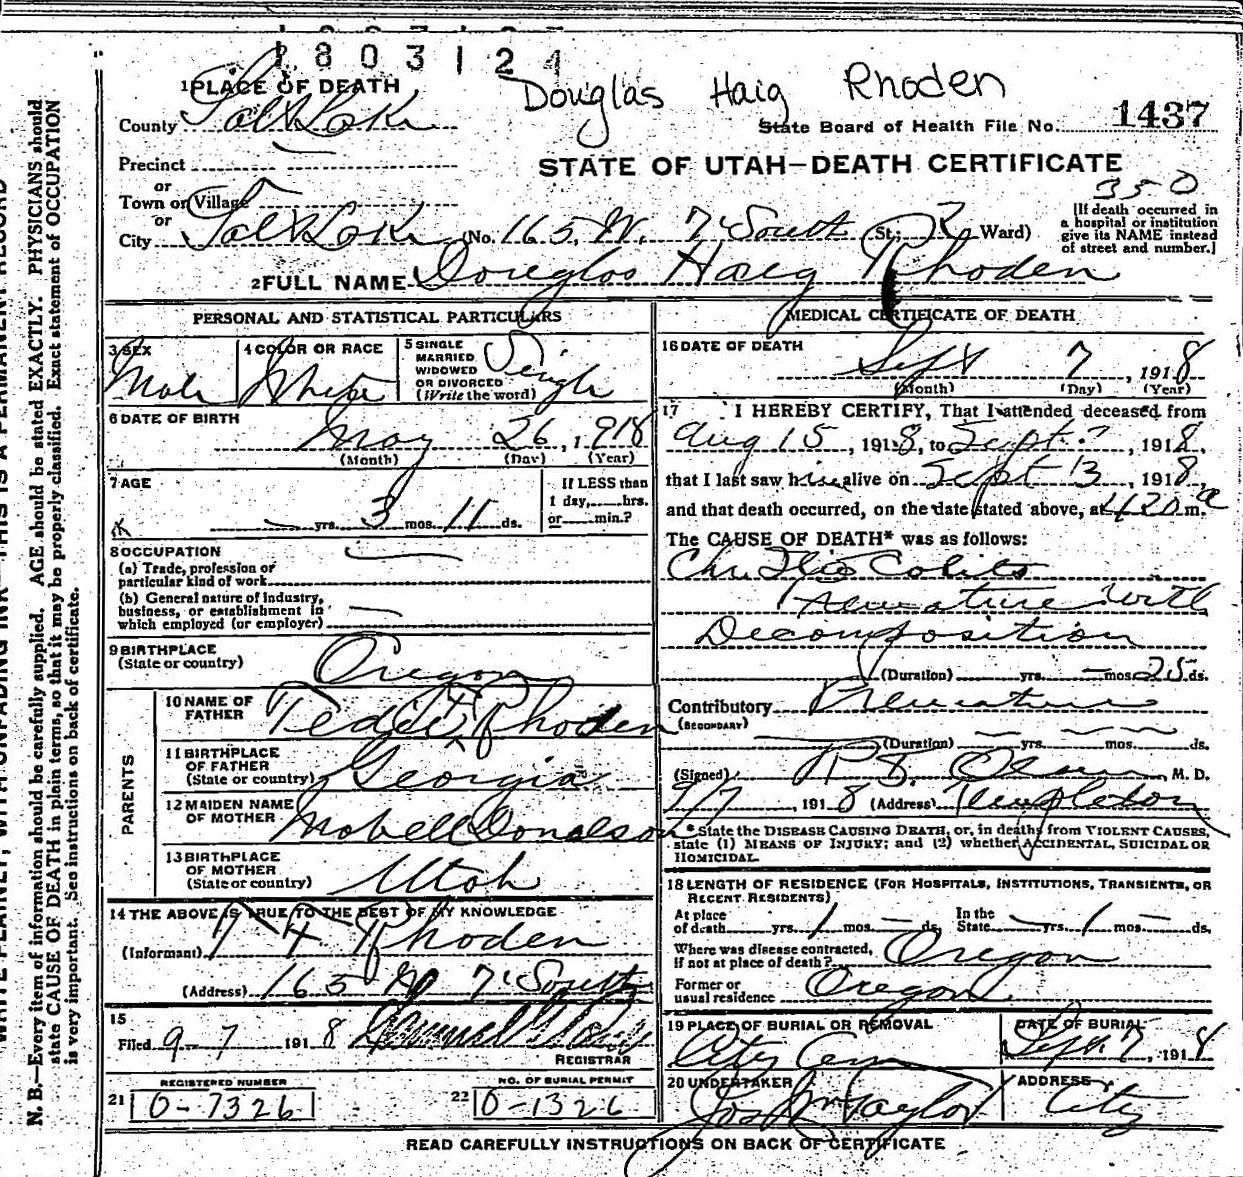 1803121
Douglas Haig Rhoden
1 PLACE OF DEATH
County Salt Lake
State Board of Health File No. 1437
Precinct
STATE OF UTAH—DEATH CERTIFICATE
or
Town or Village
350
or
City Salt Lake (No. 165 W. 7 South St.; Ward)
[If death occurred in a hospital or institution give its NAME instead of street and number.]
2 FULL NAME Douglas Haig Rhoden
PERSONAL AND STATISTICAL PARTICULARS
3 SEX
Male
4 COLOR OR RACE
White
5 SINGLE MARRIED WIDOWED OR DIVORCED (Write the word)
Single
6 DATE OF BIRTH
May 26, 1918
(Month) (Day) (Year)
7 AGE
yrs. 3 mos. 11 ds.
If LESS than 1 day, hrs. or min.?
8 OCCUPATION
(a) Trade, profession or
particular kind of work
(b) General nature of industry,
business, or establishment in
which employed (or employer)
9 BIRTHPLACE
(State or country)
Oregon
PARENTS
10 NAME OF FATHER
Rhoden
11 BIRTHPLACE OF FATHER (State or country)
Georgia
12 MAIDEN NAME OF MOTHER
Mabell Donalson
13 BIRTHPLACE OF MOTHER (State or country)
Utah
14 THE ABOVE IS TRUE TO THE BEST OF MY KNOWLEDGE
(Informant) Rhoden
(Address) 165 W 7 South
15
Filed 9-7 1918
REGISTRAR
REGISTERED NUMBER
21 0-7326
NO. OF BURIAL PERMIT
22 0-1326
MEDICAL CERTIFICATE OF DEATH
16 DATE OF DEATH
Sept 7, 1918
(Month) (Day) (Year)
17 I HEREBY CERTIFY, That I attended deceased from
Aug 15, 1918, to Sept. 7, 1918,
that I last saw him alive on Sept 3, 1918,
and that death occurred, on the date stated above, at 420 m. a
The CAUSE OF DEATH* was as follows:
Colitis
with
Decomposition
(Duration) yrs. mos. 25 ds.
Contributory
(SECONDARY)
(Duration) yrs. mos. ds.
(Signed) M. D.
9/7, 1918 (Address) Templeton
*State the DISEASE CAUSING DEATH, or, in deaths from VIOLENT CAUSES,
state (1) MEANS OF INJURY; and (2) whether ACCIDENTAL, SUICIDAL OR
HOMICIDAL.
18 LENGTH OF RESIDENCE (FOR HOSPITALS, INSTITUTIONS, TRANSIENTS, OR
RECENT RESIDENTS)
At place of death yrs. 1 mos. ds. In the State yrs. 1 mos. ds.
Where was disease contracted,
if not at place of death? Oregon
Former or
usual residence Oregon
19 PLACE OF BURIAL OR REMOVAL
City Cem
DATE OF BURIAL
Sept. 7, 1918
20 UNDERTAKER
Jos Wm Taylor
ADDRESS
City
READ CAREFULLY INSTRUCTIONS ON BACK OF CERTIFICATE
N. B.—Every item of information should be carefully supplied. AGE should be stated EXACTLY. PHYSICIANS should
state CAUSE OF DEATH in plain terms, so that it may be properly classified. Exact statement of OCCUPATION
is very important. See instructions on back of certificate.